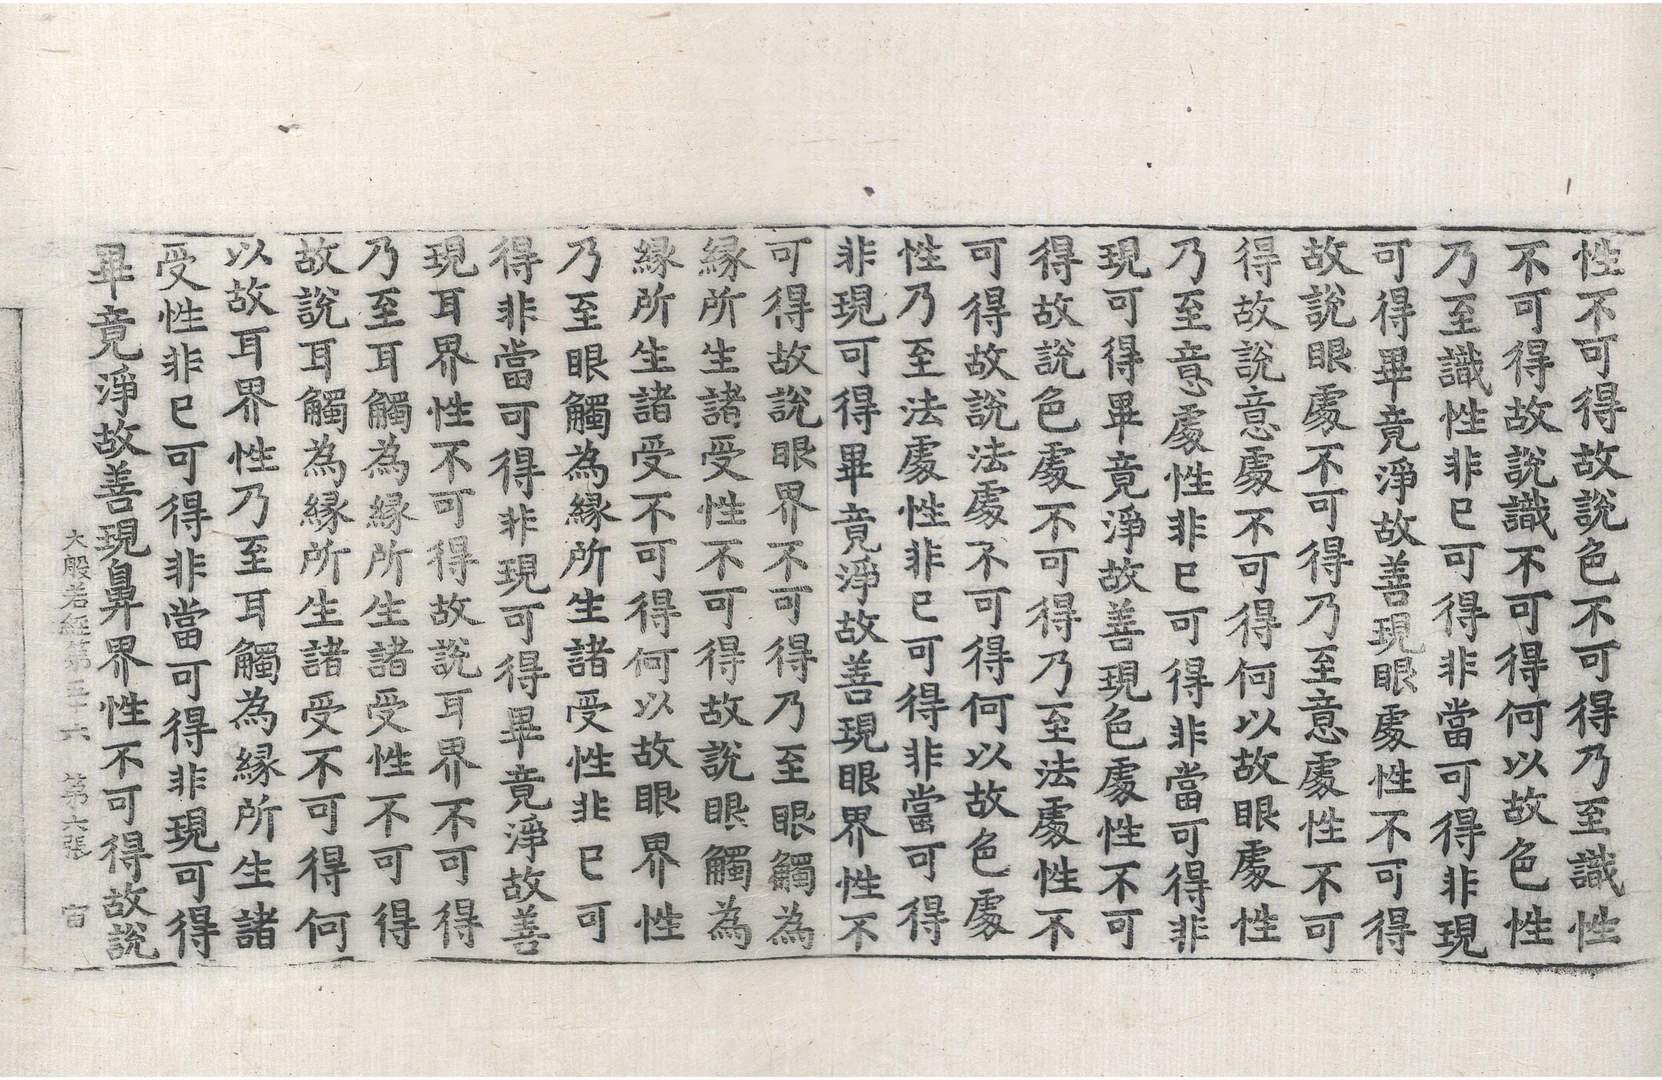 性不可得故說色不可得乃至識性
不可得故說識不可得何以故色性
乃至識性非已可得非當可得非現
可得畢竟淨故善現眼處性不可得
故說眼處不可得乃至意處性不可
得故說意處不可得何以故眼處性
乃至意處性非已可得非當可得非
現可得畢竟淨故善現色處性不可
得故說色處不可得乃至法處性不
可得故說法處不可得何以故色處
性乃至法處性非已可得非當可得
非現可得畢竟淨故善現眼界性不
可得故說眼界不可得乃至眼觸為
緣所生諸受性不可得故說眼觸為
緣所生諸受不可得何以故眼界性
乃至眼觸為緣所生諸受性非已可
得非當可得非現可得畢竟淨故善
現耳界性不可得故說耳界不可得
乃至耳觸為緣所生諸受性不可得
故說耳觸為緣所生諸受不可得何
以故耳界性乃至耳觸為緣所生諸
受性非已可得非當可得非現可得
畢竟淨故善現鼻界性不可得故說
大般若經第五十六 第六張 宙